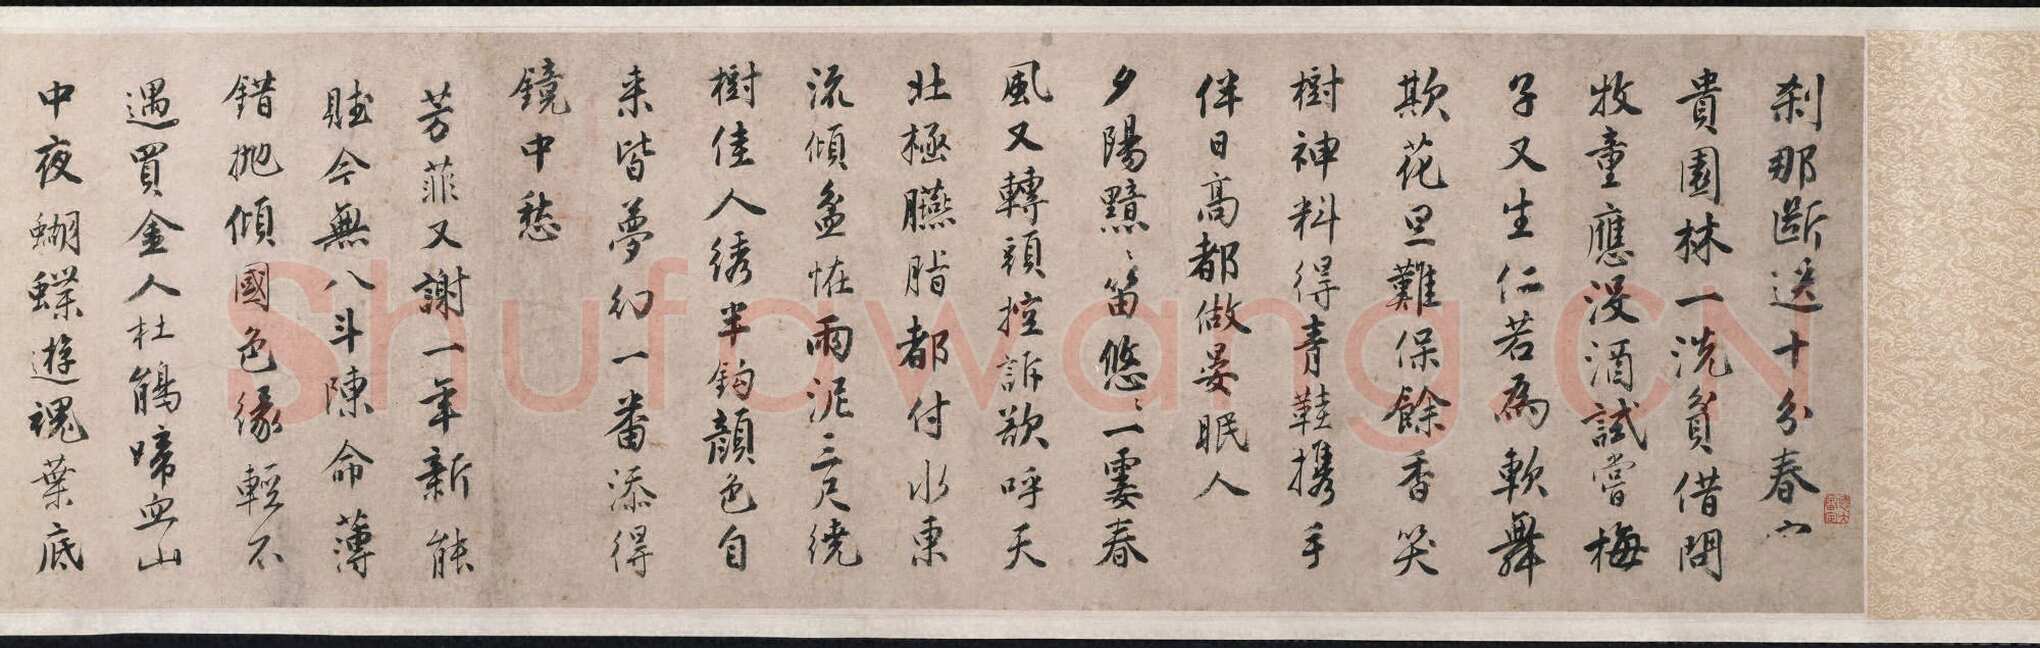 剎那斷送十分春富
貴園林一洗貧借問
牧童應沒酒試嘗梅
子又生仁若為軟舞
欺花旦難保餘香笑
樹神料得青鞋攜手
伴日高都做晏眠人
夕陽黯黯笛悠悠一霎春
風又轉頭控訴欲呼天
北極臙脂都付水東
流傾盆怪雨泥三尺繞
樹佳人綉半鈎顏色自
來皆夢幻一番添得
鏡中愁
芳菲又謝一年新能
賦今無八斗陳命薄
錯拋傾國色緣輕不
遇買金人杜鵑啼血山
中夜蝴蝶遊魂葉底
Shufawang.CN